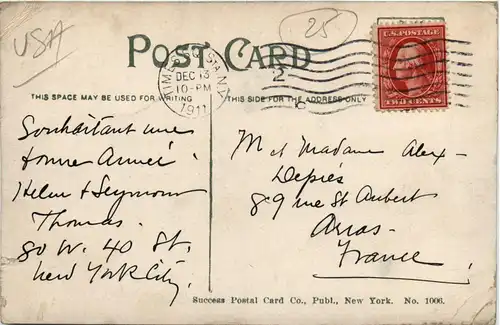 USA
25
POST CARD
U.S. POSTAGE
TWO CENTS
TIMES SQ. STA. N.Y.
DEC 13
10-PM
1911
2
THIS SPACE MAY BE USED FOR WRITING
THIS SIDE FOR THE ADDRESS ONLY
Souhaitant une
bonne Année
Helen & Seymour
Thomas.
80 W. 40 St.
New York City.
M et Madame Alex-
Depiés
89 rue St Aubert
Arras-
France
Success Postal Card Co., Publ., New York. No. 1006.